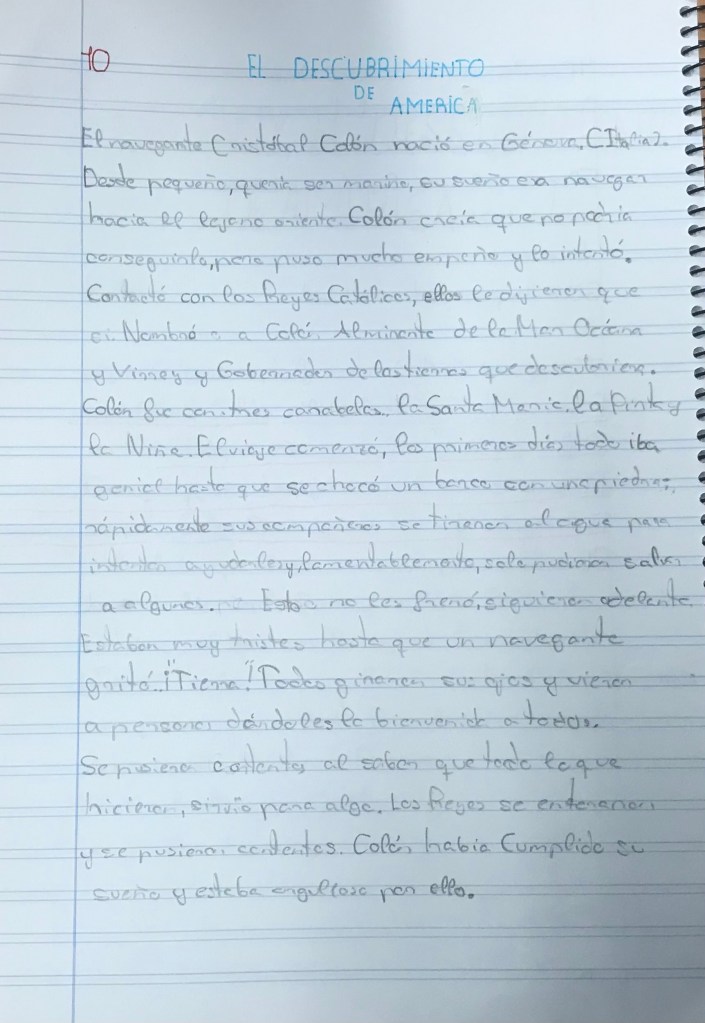 10
EL DESCUBRIMIENTO
DE
AMERICA
El navegante Cristóbal Colón nació en Génova, (Italia).
Desde pequeño, quería ser marino, su sueño era navegar
hacia el lejano oriente. Colón creía que no podría
conseguirlo, pero puso mucho empeño y lo intentó.
Contactó con los Reyes Católicos, ellos le dijeron que
si. Nombró a Colón Alminante de la Mar Océana
y Virrey y Gobernador de las tierras que descubriera.
Colón fue con tres carabelas, la Santa María, la Pinta y
la Niña. El viaje comenzó, los primeros días todo iba
genial hasta que se chocó un barco con una piedra,
rápidamente sus compañeros se tiraron al agua para
intentar ayudarles y, lamentablemente, solo pudieron salvar
a algunos. Esto no les frenó, siguieron adelante.
Estaban muy tristes hasta que un navegante
gritó: "¡Tierra!" Todos giraron sus ojos y vieron
a personas dándoles la bienvenida a todos.
Se pusieron contentos al saber que todo lo que
hicieron, sirvió para algo. Los Reyes se enteraron
y se pusieron contentos. Colón había Cumplido su
sueño y estaba orgulloso por ello.